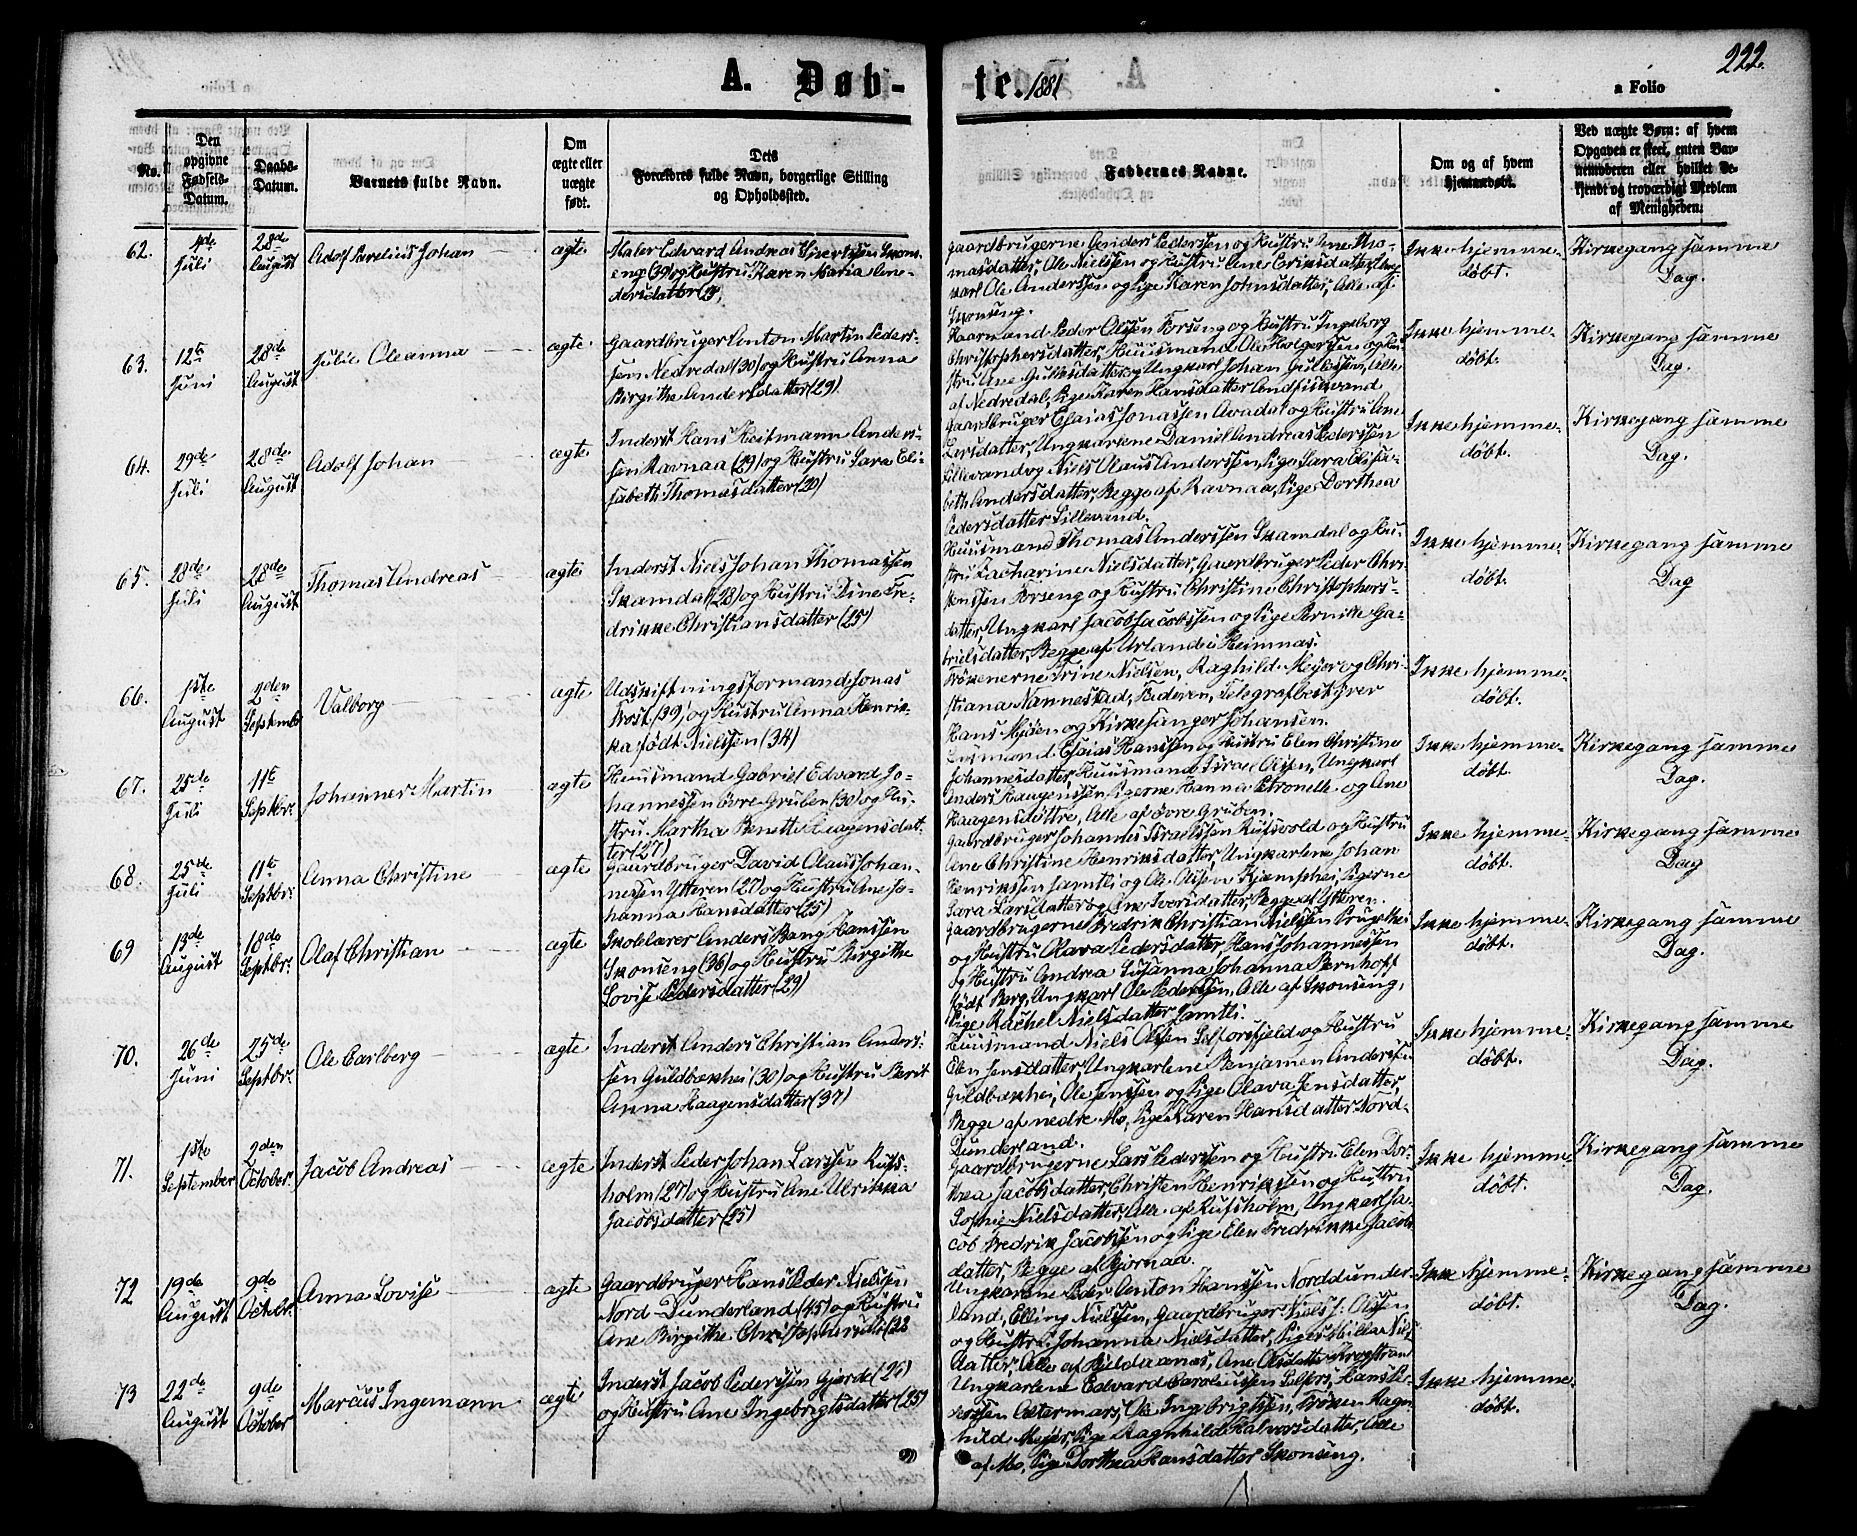 222.
A. Døb-te. 1881
a Folio
No.
Den opgivne Fødsels-Datum.
Daabs-Datum.
Barnets fulde Navn.
Om ægte eller uægte født.
Dets Forældres fulde Navn, borgerlige Stilling og Opholdssted.
Faddernes Navne.
Om og af hvem hjemmedøbt.
Ved uægte Børn: af hvem Opgaven er skeet, enten Barnemoderen eller hvilket bekjendt og troværdigt Medlem af Menigheden.
62. 4de Juli 28de August Adolf Johan ægte
Maler Edvard Andreas
eng (39) og Hustru Karen Maria An-
dersdatter
Gaardbrugerne Anders Pederssen og Hustru Ane Tho-
masdatter, Ole Nielssen og Hustru Ane Eriksdatter, Ung-
karl Ole Anderssen og Pige Karen Johnsdatter, Alle af
Skonseng.
Ikke hjemme-
døbt.
Kirkegang samme
Dag.
63. 12te Juni 28de August Julie Oleanna ægte
Gaardbruger Anton Martin Peders-
sen Nedredal (30) og Hustru Anna
Birgithe Andersdatter (29)
Kaarmand Peder Olssen Forseng og Hustru Ingeborg
Christophersdatter, Huusmand Ole Holgerssen og Hu-
stru Ane og Ungkarl Johan Gullessen, Alle
af Nedredal, Pige Karen Hansdatter Andfiskvand
Ikke hjemme-
døbt.
Kirkegang samme
Dag.
64. 29de Juli 28de August Adolf Johan ægte
Inderst Hans Heitmann Anders-
sen Ravnaa (29) og Hustru Sara Eli-
sabeth Thomasdatter (20)
Gaardbruger Esaias Jonassen Avadal og Hustru Ane
Larsdatter, Ungkarlene Daniel Andreas Pederssen
Lillevand og Niels Olaus Anderssen, Pige Sara Elisa-
beth Andersdatter, Begge af Ravnaa, Pige Dorthea
Pedersdatter Lillevand.
Ikke hjemme-
døbt.
Kirkegang samme
Dag.
65. 28de Juli 28de August Thomas Andreas ægte
Inderst Niels Johan Thomassen
Skamdal (28) og Hustru Dine Fre-
drikke Christiansdatter (25)
Huusmand Thomas Anderssen Skamdal og Hu-
stru Zacharine Nielsdatter, Gaardbruger Peder Chri-
stenssen Forseng og Hustru Christine Christophers-
datter, Ungkarl Jacob Jacobssen og Pige Pernille Ga-
brielsdatter, Begge af Urland i Hemnæs.
Ikke hjemme-
døbt.
Kirkegang samme
Dag
66. 1ste August 2den Septembr Valborg ægte
Udskiftningsformand Jonas
Frost (39) og Hustru Anna Henrik-
ka født Nielssen (34)
Frøkenerne Trine Nielsen, Raghild Meyer og Chri-
stiana Nannestad, Faderen, Telegrafbestyrer
Hans Mjøen og Kirkesanger Johansen.
Ikke hjemme-
døbt.
67. 25de Juli 11te Septbr. Johannes Martin ægte
Huusmand Gabriel Edvard Jo-
hannessen øvre Gruben (30) og Hu-
stru Martha Benette Haagensdat-
ter (27)
Huusmand Esaias Hanssen og Hustru Elen Christine
Johannesdatter, Huusmand Israel Olssen, Ungkarl
Anders Haagenssen, Pigerne Hanna Petronelle og Ane
Haagensdøttre, Alle af øvre Gruben.
Ikke hjemme-
døbt.
Kirkegang samme
Dag.
68. 25de Juli 11te Septbr. Anna Christine ægte
Gaardbruger David Olaus Johan-
nessen Ytteren (27) og Hustru Ane Jo-
hanna Hansdatter (25)
Gaardbruger Johannes Israelssen Rufsvold og Hustru
Ane Christine Henriksdatter, Ungkarlene Johan
Henrikssen Jamtli og Ole Olssen Kjemphei, Pigerne
Sara Larsdatter og Ane Iversdatter, Begge af Ytteren.
Ikke hjemme-
døbt.
Kirkegang samme
Dag
69 13de August 18de Septbr. Olaf Christian ægte
Skolelærer Anders Bang Hanssen
Skonseng (36) og Hustru Birgithe
Lovise Pedersdatter (29)
Gaardbrugerne Fredrik Christian Nielssen
og Hustru Olava Pedersdatter, Hans Johannessen
og Hustru Andrea Susanna Johanna Bernhoft
født Berg, Ungkarl Ole Pederssen, Alle af Skonseng,
Pige Rachel Nielsdatter Jamtli.
Ikke hjemme-
døbt.
Kirkegang samme
Dag.
70. 26de Juni 25de Septbr. Ole Carlberg ægte
Inderst Anders Christian Anders-
sen Guldbakhei (30) og Hustru Berit
Anna Haagensdatter (37)
Huusmand Niels Olssen Selforsfjeld og Hustru
Elen Jensdatter, Ungkarlene Benjamen Anderssen
Guldbakhei, Ole Jenssen og Pige Olava Jensdatter,
Begge af nedre Mo, Pige Karen Hansdatter Nord-
Dunderland.
Ikke hjemme-
døbt.
Kirkegang samme
Dag.
71. 1ste September 2den October. Jacob Andreas ægte
Inderst Peder Johan Larssen Rufs-
holm (27) og Hustru Ane Ulrikka
Jacobsdatter (25)
Gaardbrugerne Lars Pederssen og Hustru Elen Dor-
thea Jacobsdatter, Christen Henrikssen og Hustru
Sophie Nielsdatter, Alle af Rufsholm, Ungkarl Ja-
cob Fredrik Jacobssen og Pige Elen Fredrikke Jacobs-
datter, Begge af Bjørnaa.
Ikke hjemme-
døbt.
Kirkegang samme
Dag.
72 19de August 9de Octobr. Anna Lovise ægte
Gaardbruger Hans Peder Nielssen
Nord-Dunderland (45) og Hustru
Ane Birgithe Christophersdtr (28
Ungkarlene Peder Anton Hanssen Norddunder-
land, Elling Nielssen, Gaardbruger Niels J. Olssen
og Hustru Johanna Nielsdatter, Pige Milla Niels-
datter, Alle af Hjeldaanæs, Ane Olsdatter Krogstrand
Ikke hjemme-
døbt.
Kirkegang samme
Dag.
73 22de August 9de October Marcus Ingemann ægte
Inderst Jacob Pederssen Gjerde (26)
og Hustru Ane Ingebrigtsdatter (25)
Ungkarlene Edvard Caroliussen Selfors, Hans Pe-
derssen Ole Ingebrigtsen, Frøken Ragn-
hild Meyer, Pige Ragnhild Halvorsdatter, Alle
af Mo, Pige Dorthea Hansdatter Skonseng.
Ikke hjemme-
døbt.